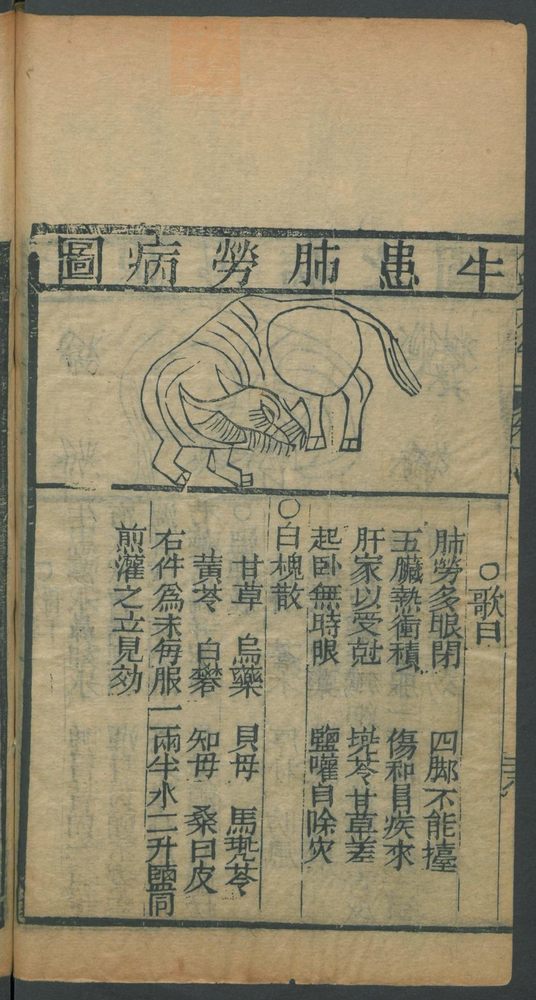 牛患肺勞病圖
○歌曰
肺勞多眼閉 四脚不能擡
五臟熱衝積 傷和目疾來
肝家以受尅 兠苓甘草差
起卧無時眼 鹽嚾自除灾
○白槐散
甘草 烏藥 貝母 馬兠苓
黄芩 白礬 知毋 桑白皮
右件為末每服一兩半水二升鹽同
煎灌之立見効